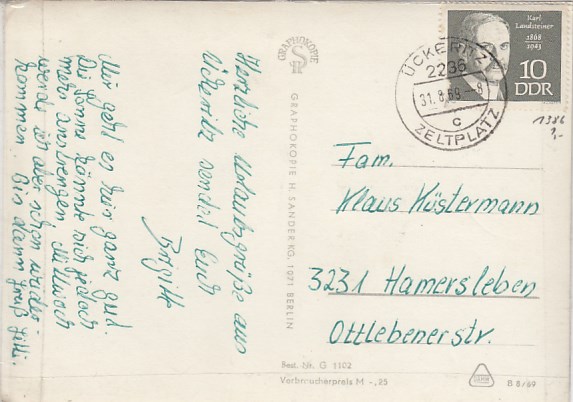 Herzliche Urlaubsgrüße aus
Ückeritz sendet Euch
Brigitte
Mir geht es hier ganz gut.
Die Sonne könnte sich jedoch
mehr anstrengen. Mittwoch
werde ich aber schon wieder
kommen. Bis dann grüß
GRAPHOKOPIE
GRAPHOKOPIE H. SANDER KG, 1071 BERLIN
Best. Nr. G 1102
Verbraucherpreis M -,25
B 8/69
Karl
Landsteiner
1868
1943
10
DDR
ÜCKERITZ
2236
31.8.69 -8
c
ZELTPLATZ
1386
Fam.
Klaus Küstermann
3231 Hamersleben
Ottlebenerstr.